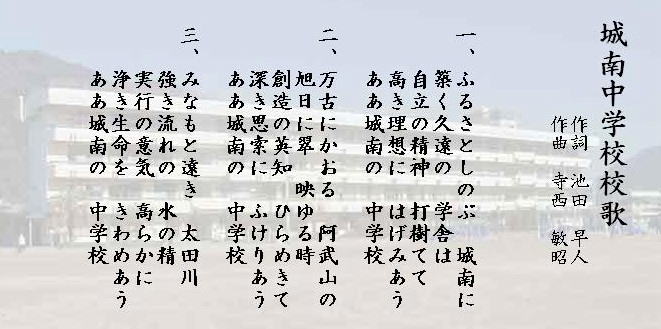 城南中学校校歌
作詞 池田 早人
作曲 寺西 敏昭
一、ふるさとしのぶ 城南に
築く久遠の 学舎は
自立の精神 打樹てて
高き理想に はげみあう
ああ城南の 中学校
二、万古にかおる 阿武山の
旭日に翠 映ゆる時
創造の英知 ひらめきて
深き思索に ふけりあう
ああ城南の 中学校
三、みなもと遠き 太田川
強き流れの 水の精
実行の意気 高らかに
浄き生命を きわめあう
ああ城南の 中学校